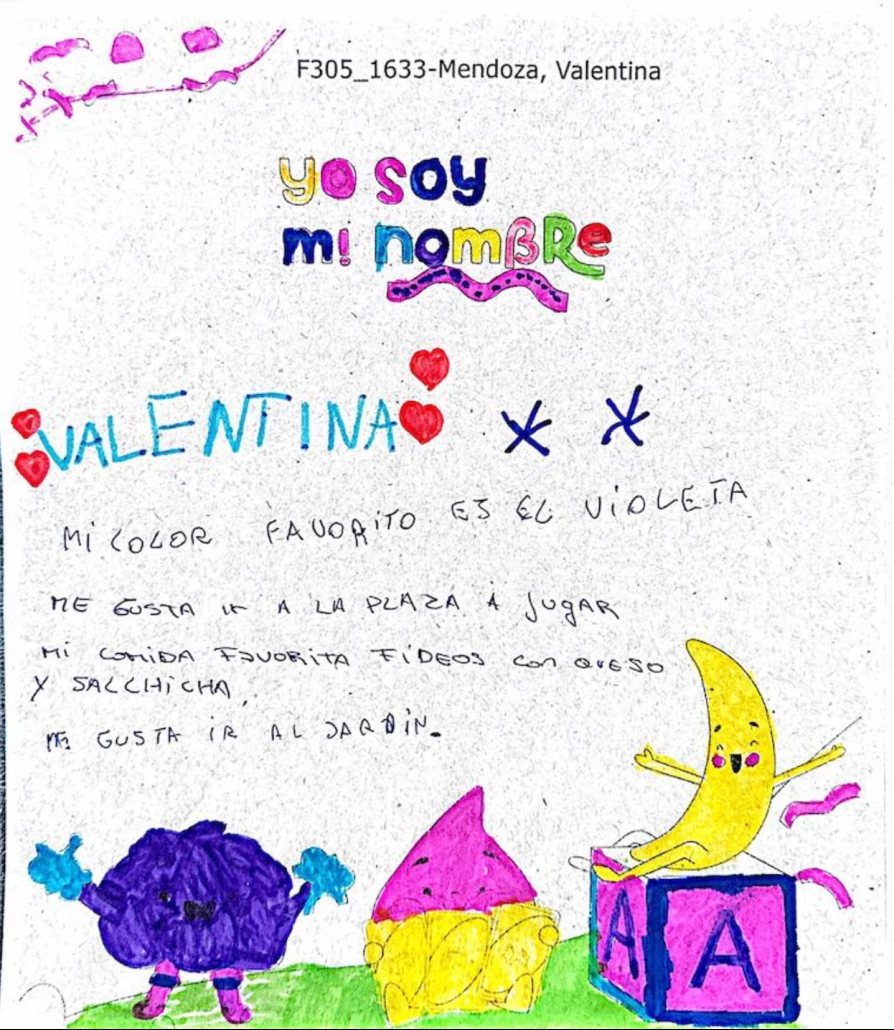 F305_1633-Mendoza, Valentina
yo soy
mi nomBRe
VALENTINA
Mi COLOR FAVORiTO ES EL ViOLETA
ME GUSTA IR A LA PLAZA A JUgAR
Mi COMiDA FAVORiTA FiDEOS con QUESO
Y SALCHiCHA,
ME GUSTA iR AL JARDiN.
A A